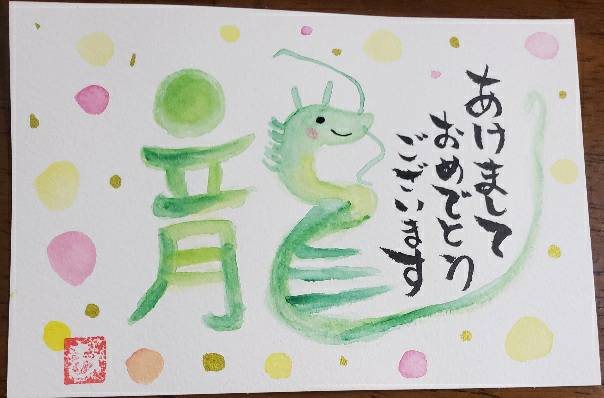 あけまして
おめでとう
ございます
龍